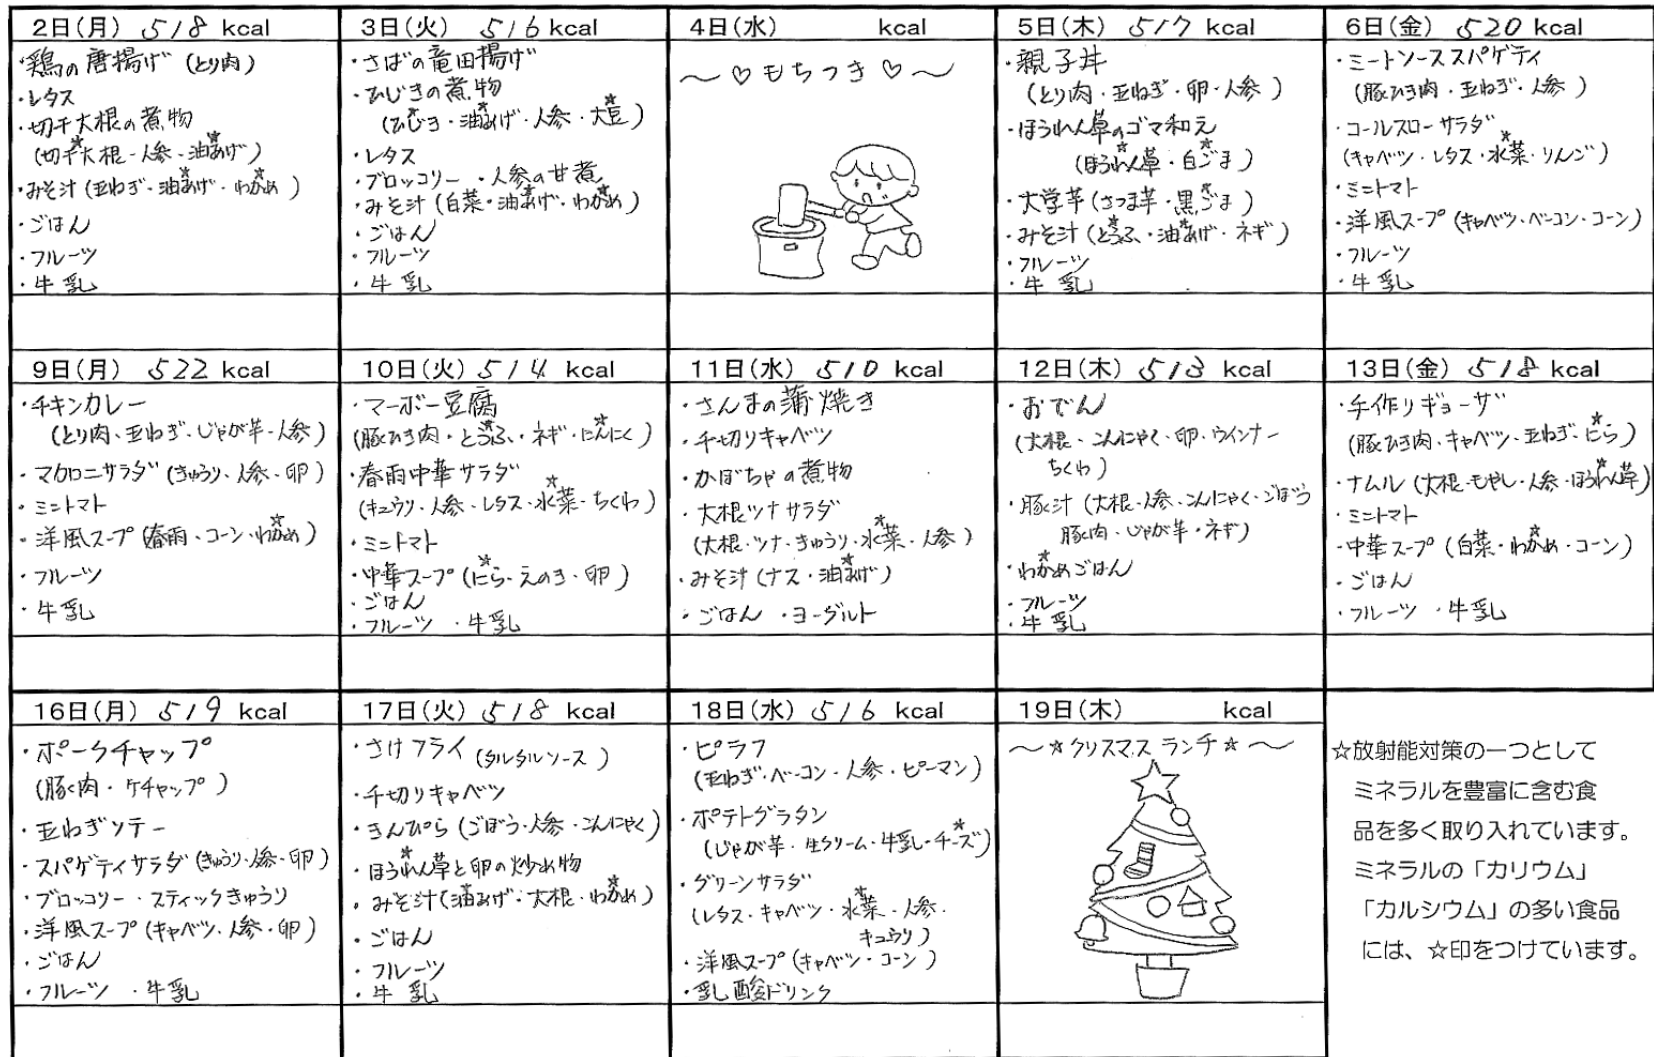 2日(月) 518 kcal
・鶏の唐揚げ (とり肉)
・レタス
・切干大根の煮物
(切干大根・人参・油あげ)
・みそ汁(玉ねぎ・油あげ・わかめ)
・ごはん
・フルーツ
・牛乳
3日(火) 516 kcal
・さばの竜田揚げ
・ひじきの煮物
(ひじき・油あげ・人参・大豆)
・レタス
・ブロッコリー ・人参の甘煮
・みそ汁(白菜・油あげ・わかめ)
・ごはん
・フルーツ
・牛乳
4日(水) kcal
〜♡もちつき♡〜
5日(木) 517 kcal
・親子丼
(とり肉・玉ねぎ・卵・人参)
・ほうれん草のゴマ和え
(ほうれん草・白ごま)
・大学芋(さつま芋・黒ごま)
・みそ汁(とうふ・油あげ・ネギ)
・フルーツ
・牛乳
6日(金) 520 kcal
・ミートソーススパゲティ
(豚ひき肉・玉ねぎ・人参)
・コールスローサラダ
(キャベツ・レタス・水菜・りんご)
・ミニトマト
・洋風スープ(キャベツ・ベーコン・コーン)
・フルーツ
・牛乳
9日(月) 522 kcal
・チキンカレー
(とり肉・玉ねぎ・じゃが芋・人参)
・マカロニサラダ(きゅうり・人参・卵)
・ミニトマト
・洋風スープ(春雨・コーン・わかめ)
・フルーツ
・牛乳
10日(火) 514 kcal
・マーボー豆腐
(豚ひき肉・とうふ・ネギ・にんにく)
・春雨中華サラダ
(キュウリ・人参・レタス・水菜・ちくわ)
・ミニトマト
・中華スープ(にら・えのき・卵)
・ごはん
・フルーツ ・牛乳
11日(水) 510 kcal
・さんまの蒲焼き
・千切りキャベツ
・かぼちゃの煮物
・大根ツナサラダ
(大根・ツナ・きゅうり・水菜・人参)
・みそ汁(ナス・油あげ)
・ごはん ・ヨーグルト
12日(木) 513 kcal
・おでん
(大根・こんにゃく・卵・ウインナー
ちくわ)
・豚汁(大根・人参・こんにゃく・ごぼう
豚肉・じゃが芋・ネギ)
・わかめごはん
・フルーツ
・牛乳
13日(金) 518 kcal
・手作りギョーザ
(豚ひき肉・キャベツ・玉ねぎ・にら)
・ナムル(大根・もやし・人参・ほうれん草)
・ミニトマト
・中華スープ(白菜・わかめ・コーン)
・ごはん
・フルーツ ・牛乳
16日(月) 519 kcal
・ポークチャップ
(豚肉・ケチャップ)
・玉ねぎソテー
・スパゲティサラダ(きゅうり・人参・卵)
・ブロッコリー・スティックきゅうり
・洋風スープ(キャベツ・人参・卵)
・ごはん
・フルーツ ・牛乳
17日(火) 518 kcal
・さけフライ(タルタルソース)
・千切りキャベツ
・きんぴら(ごぼう・人参・こんにゃく)
・ほうれん草と卵の炒め物
・みそ汁(油あげ・大根・わかめ)
・ごはん
・フルーツ
・牛乳
18日(水) 516 kcal
・ピラフ
(玉ねぎ・ベーコン・人参・ピーマン)
・ポテトグラタン
(じゃが芋・生クリーム・牛乳・チーズ)
・グリーンサラダ
(レタス・キャベツ・水菜・人参・
キュウリ)
・洋風スープ(キャベツ・コーン)
・乳酸ドリンク
19日(木) kcal
〜☆クリスマスランチ☆〜
☆放射能対策の一つとして
ミネラルを豊富に含む食
品を多く取り入れています。
ミネラルの「カリウム」
「カルシウム」の多い食品
には、☆印をつけています。